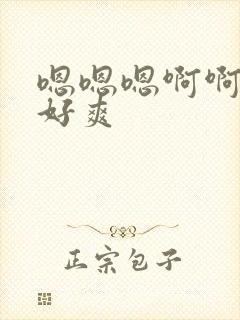 嗯嗯嗯啊啊
好爽
正宗包子